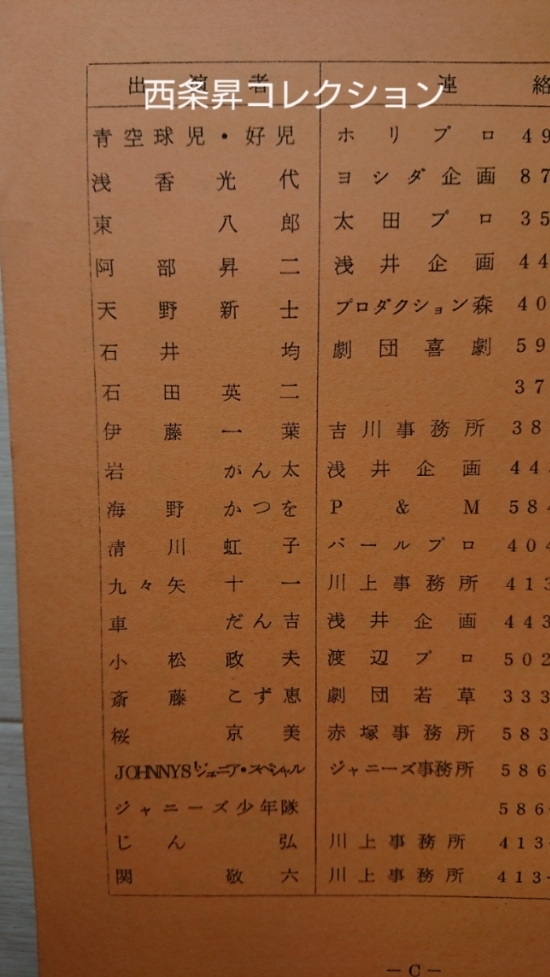 出演者 連絡
西条昇コレクション
青空球児・好児 ホリプロ 49
浅香光代 ヨシダ企画 87
東八郎 太田プロ 35
阿部昇二 浅井企画 44
天野新士 プロダクション森 40
石井均 劇団喜劇 59
石田英二 37
伊藤一葉 吉川事務所 38
岩がん太 浅井企画 44
海野かつを P & M 584
清川虹子 パールプロ 404
九々矢十一 川上事務所 413
車だん吉 浅井企画 443
小松政夫 渡辺プロ 502
斎藤こず恵 劇団若草 333
桜京美 赤塚事務所 583
JOHNNYS'ジュニア・スペシャル ジャニーズ事務所 586
ジャニーズ少年隊 586
じん弘 川上事務所 413-
関敬六 川上事務所 413-
—C—